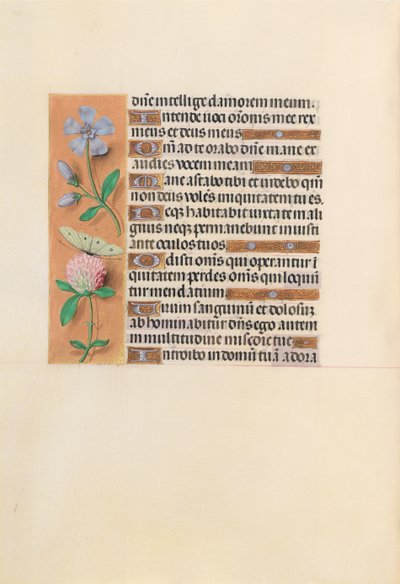 dñe intellige clamorem meum.
Intende uoci orõnis mee rex
meus et deus meus
Qm̃ ad te orabo dñe mane et
exaudies vocem meam
Mane astabo tibi et videbo qm̃
non deus volẽs iniquitatem tu es.
Neqz habitabit iuxta te mali
gnus neqz permanebunt iniusti
ante oculos tuos
Odisti omnis qui operantur ĩ
iquitatem perdes omñis qui loquũ
tur mendatium
Virum sanguinũ et dolosuz
abhominabitur dñs ego autem
in multitudine miscdie tue
Introibo in domũ tuã adora